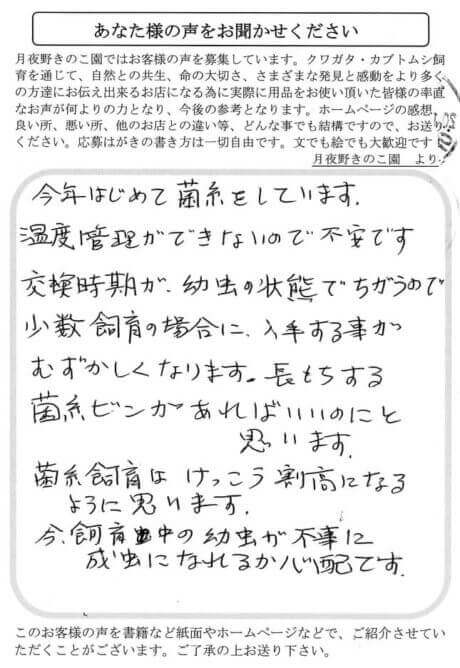 あなた様の声をお聞かせください
月夜野きのこ園ではお客様の声を募集しています。クワガタ・カブトムシ飼
育を通じて、自然との共生、命の大切さ、さまざまな発見と感動をより多く
の方達にお伝え出来るお店になる為に実際に用品をお使い頂いた皆様の率直
なお声が何よりの力となり、今後の参考となります。ホームページの感想、
良い所、悪い所、他のお店との違い等、どんな事でも結構ですので、お送り
ください。応募はがきの書き方は一切自由です。文でも絵でも大歓迎です！
月夜野きのこ園 より
今年はじめて菌糸をしています.
温度管理ができないので不安です
交換時期が、幼虫の状態でちがうので
少数飼育の場合に、入手する事が
むずかしくなります。長もちする
菌糸ビンがあればいいのにと
思います.
菌糸飼育は けっこう割高になる
ように思います.
今、飼育中の幼虫が不事に
成虫になれるか心配です.
このお客様の声を書籍など紙面やホームページなどで、ご紹介させてい
ただくことがございます。ご了承の上お送り下さい。